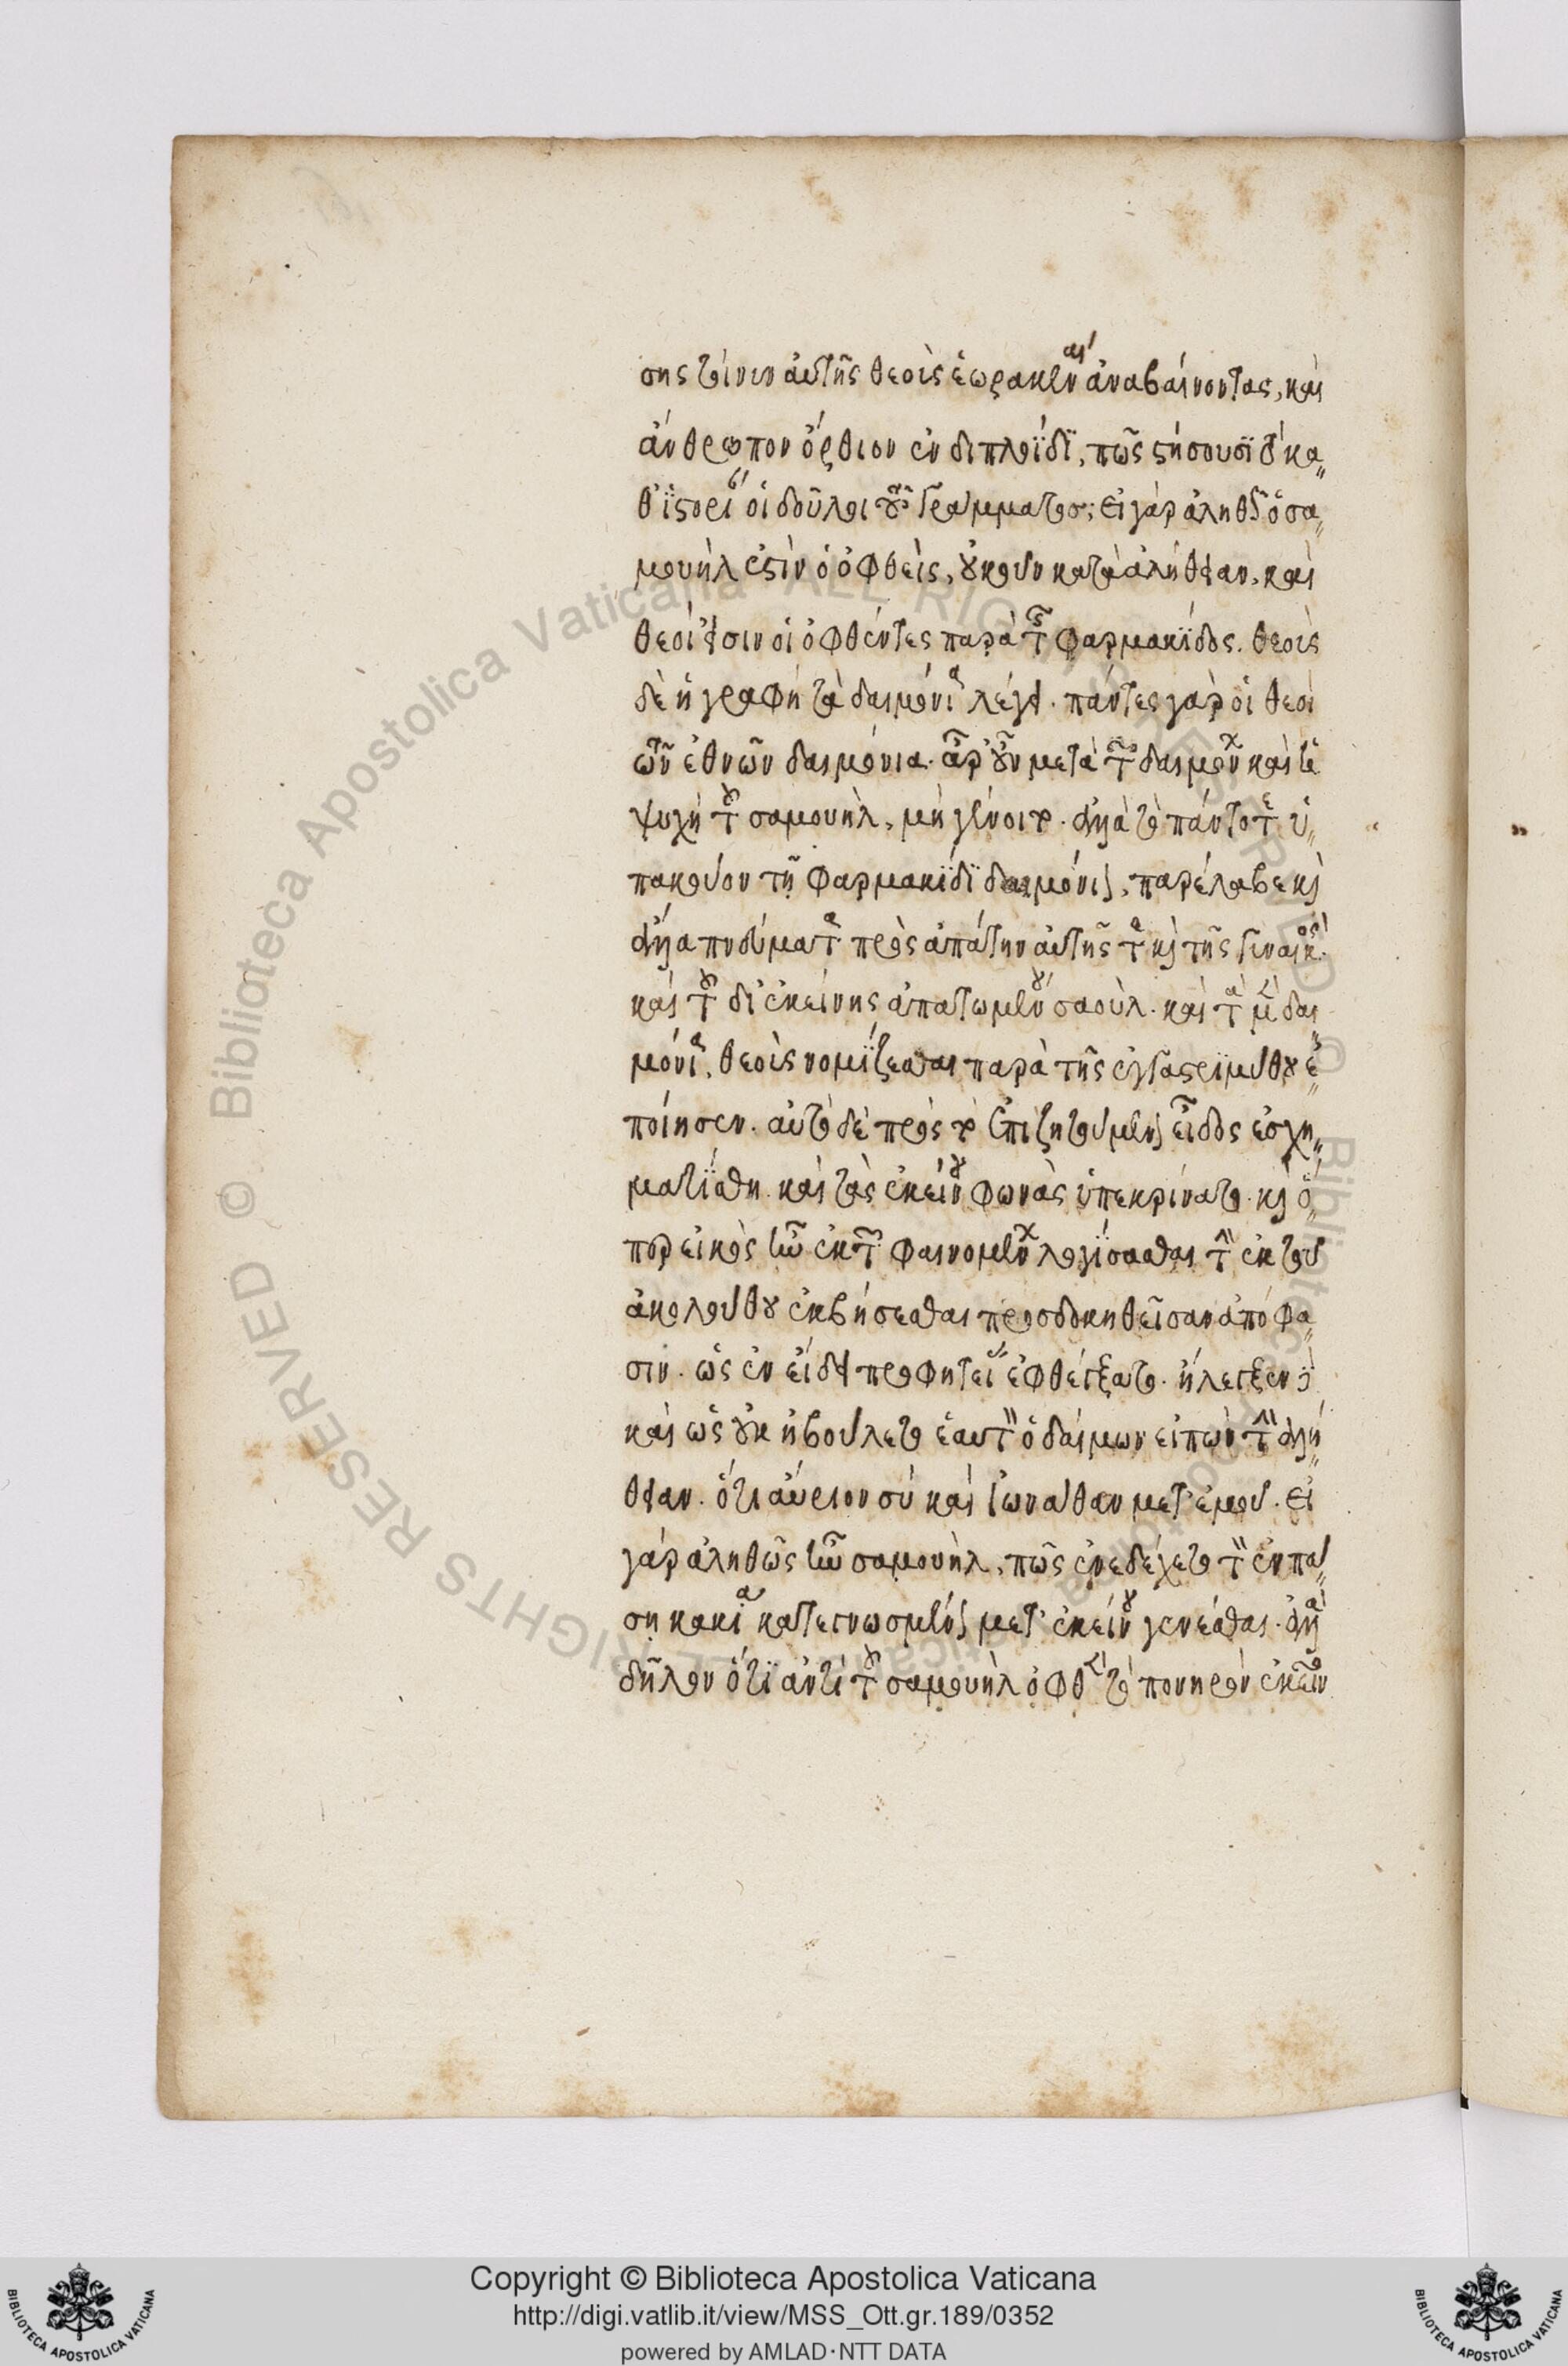 σης τοίνυν αὐτῆς θεοὺς ἑωρακέναι ἀναβαίνοντας, καὶ
ἄνθρωπον ὄρθιον ἐν διπλοΐδι, πῶς στήσουσι τὸ κα
θιστορεῖν οἱ δοῦλοι τοῦ γράμματος; εἰ γὰρ ἀληθῶς ὁ σα
μουὴλ ἐστὶν ὁ ὀφθεὶς, οὐκοῦν κατὰ ἀλήθειαν, καὶ
θεοί εἰσιν οἱ ὀφθέντες παρὰ τῆς φαρμακίδος. θεοὺς
δὲ ἡ γραφὴ τὰ δαιμόνια λέγει. πάντες γὰρ οἱ θεοὶ
τῶν ἐθνῶν δαιμόνια. ἆρ' οὖν μετὰ τῶν δαιμόνων καὶ ἡ
ψυχὴ τοῦ σαμουὴλ, μὴ γένοιτο. ἀλλὰ τὸ πάντοτε ὑ
πακοῦον τῇ φαρμακίδι δαιμόνιον, παρέλαβε καὶ
ἄλλα πνεύματα πρὸς ἀπάτην αὐτῆς τε καὶ τῆς γυναικός.
καὶ τοῦ δι' ἐκείνης ἀπατωμένου σαούλ. καὶ τὰ μὲν δαι
μόνια, θεοὺς νομίζεσθαι παρὰ τῆς ἐγγαστριμύθου ἐ
ποίησεν. αὐτὸ δὲ πρὸς τὸ ἐπιζητούμενον εἶδος ἐσχη
ματίσθη. καὶ τὰς ἐκείνου φωνὰς ὑπεκρίνατο. καὶ ὅ
περ εἰκὸς ἦν ἐκ τῶν φαινομένων λογίσασθαι τὴν ἐκ τοῦ
ἀκολούθου ἐκβήσεσθαι προσδοκηθεῖσαν ἀπόφα
σιν. ὡς ἐν εἴδει προφητείας ἐφθέγξατο. ἤλεγξεν δὲ
καὶ ὡς οὐκ ἠβούλετο ἑαυτὸν ὁ δαίμων εἰπὼν τὴν ἀλή
θειαν. ὅτι αὔριον σὺ καὶ ἰωνάθαν μετ' ἐμοῦ. εἰ
γὰρ ἀληθῶς ἦν σαμουὴλ, πῶς ἐνεδέχετο τὸν ἐν πά
σῃ κακίᾳ κατεγνωσμένον μετ' ἐκείνου γενέσθαι. ἀλλὰ
δῆλον ὅτι ἀντὶ τοῦ σαμουὴλ ὀφθὲν τὸ πονηρὸν ἐκεῖνο
Copyright © Biblioteca Apostolica Vaticana
http://digi.vatlib.it/view/MSS_Ott.gr.189/0352
powered by AMLAD·NTT DATA